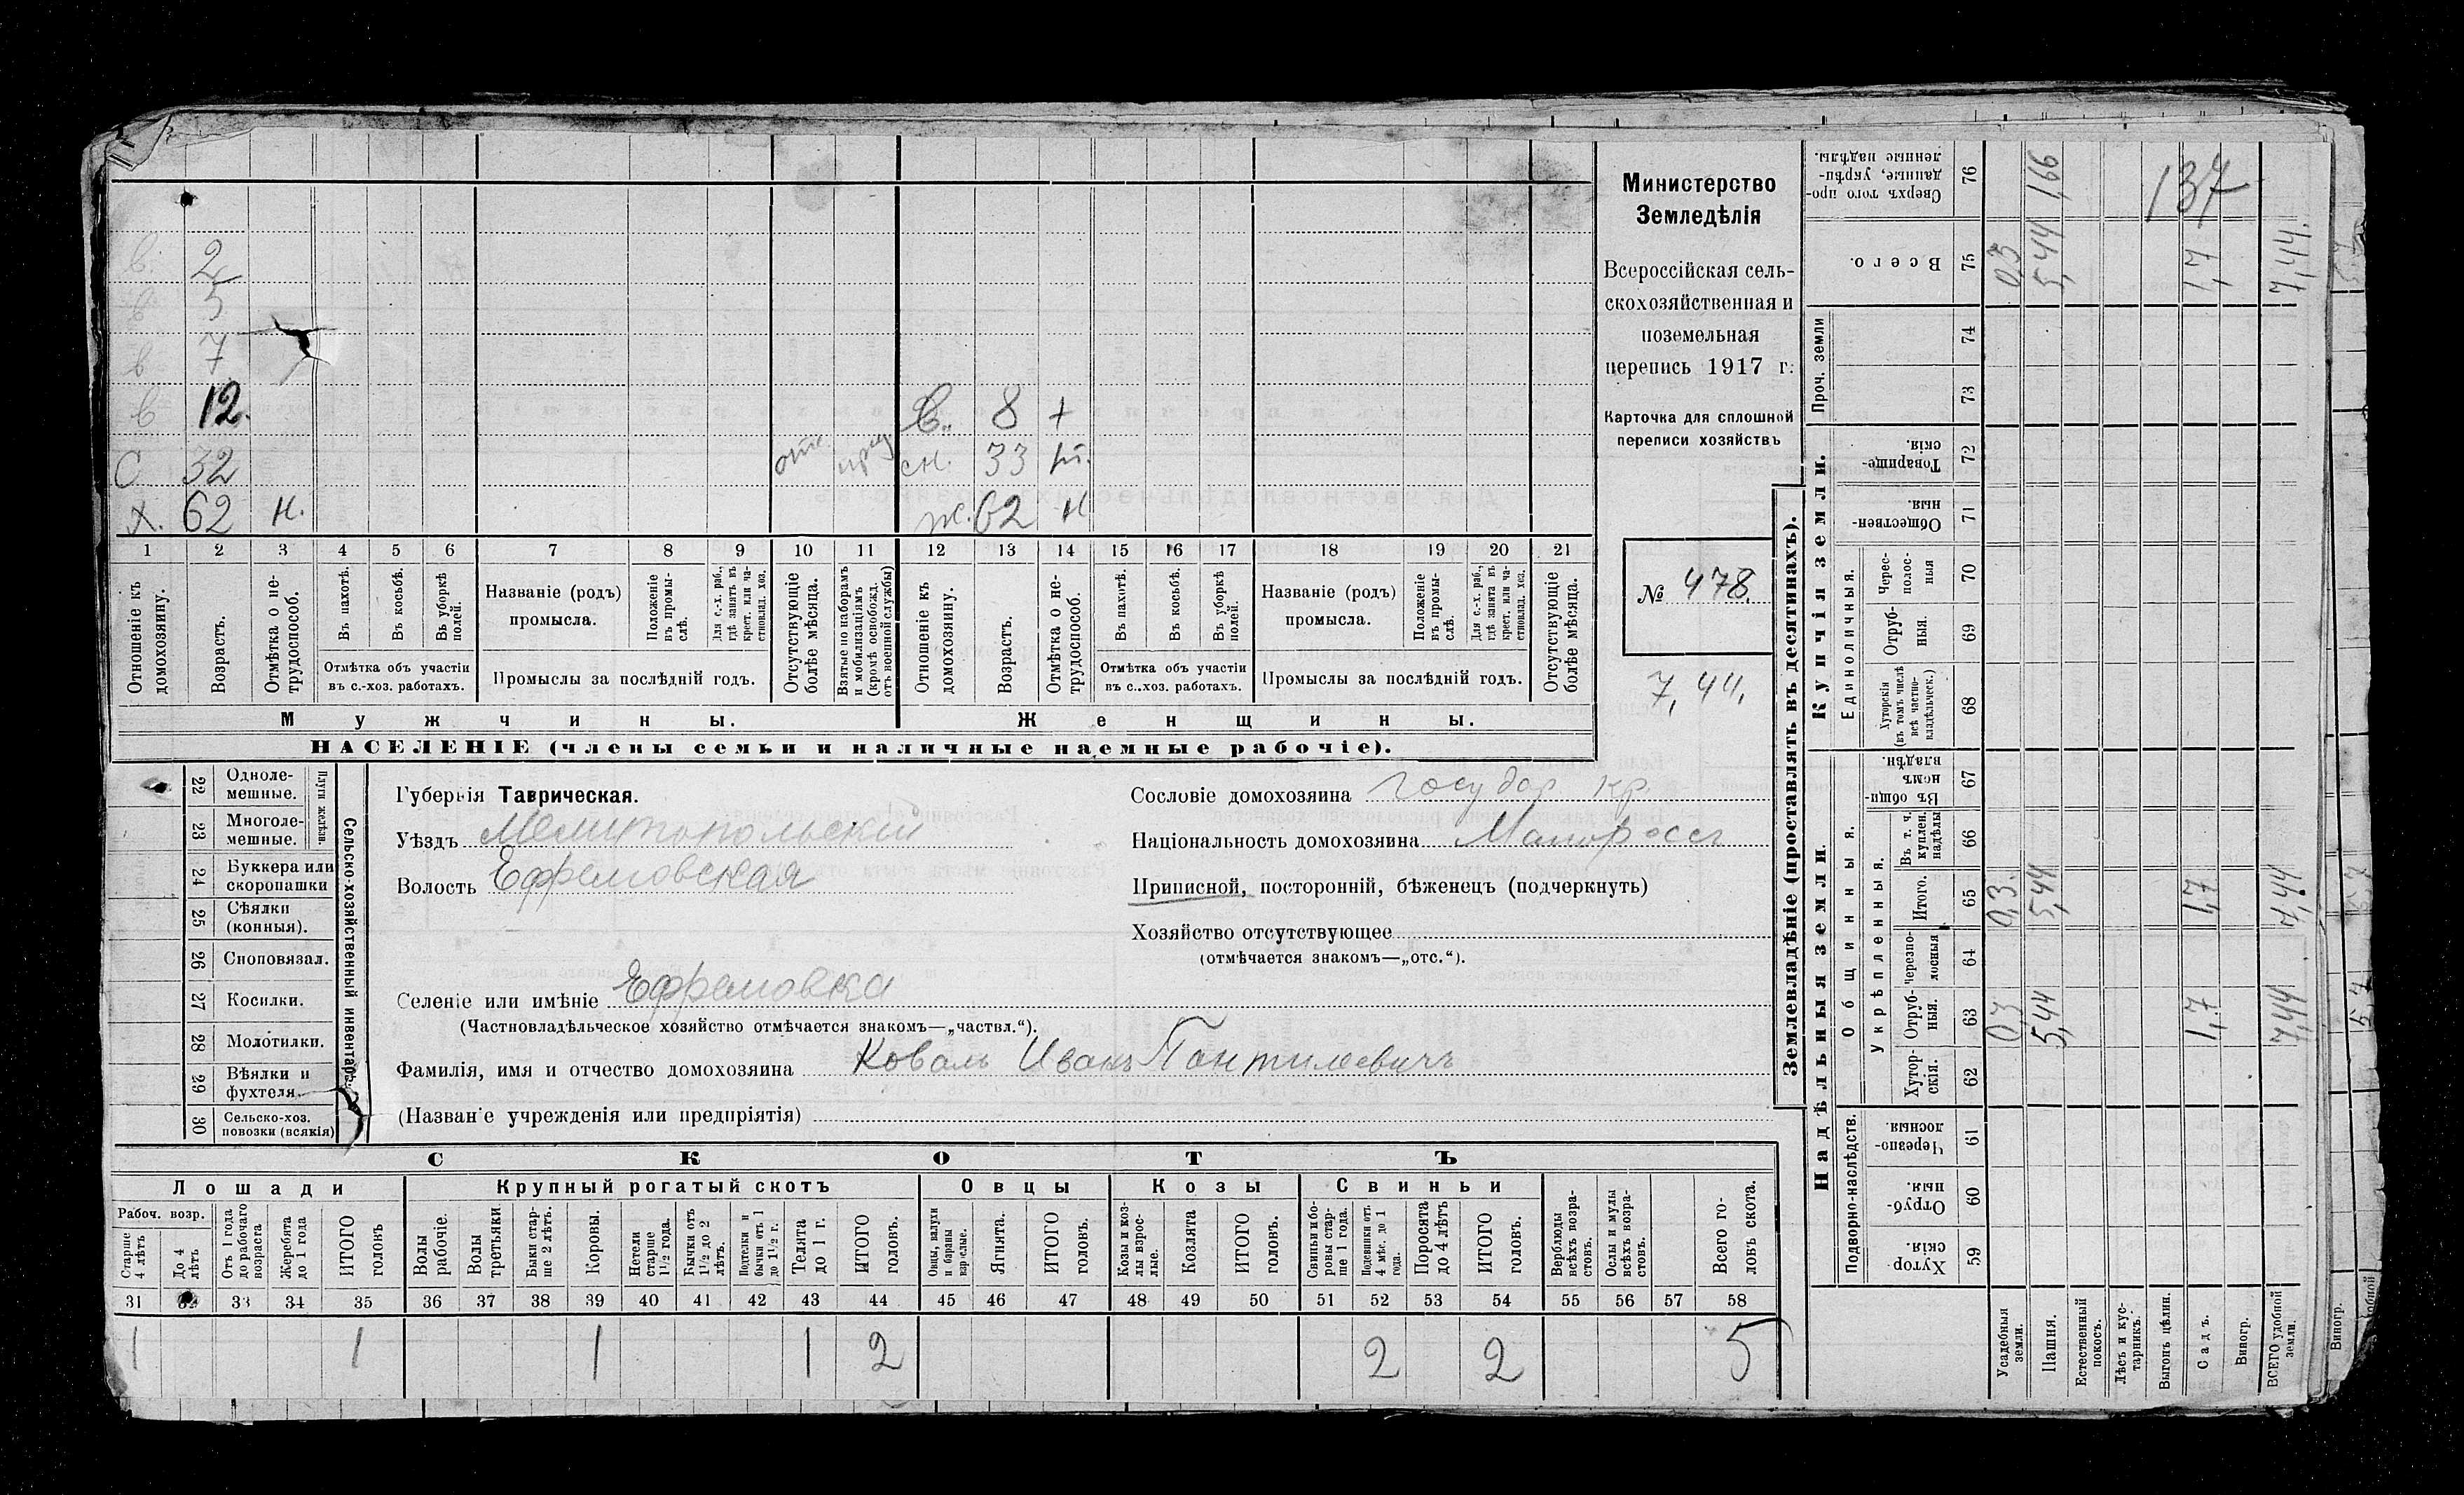 в. 2
в 5
в 7
в 12.
С 32
х. 62 н.
отс.
в. 8 +
сн. 33
ж. 62 н
1 2 3 4 5 6 7 8 9 10 11 12 13 14 15 16 17 18 19 20 21
Отношеніе къ домохозяину.
Возрастъ.
Отмѣтка о не-трудоспособ.
Въ пахотѣ.
Въ косьбѣ.
Въ уборкѣ полей.
Отмѣтка объ участіи
въ с.-хоз. работахъ.
Названіе (родъ)
промысла.
Положеніе въ промы-слѣ.
Для с.-х. раб., гдѣ занятъ въ крест. или ча-стновлад. хоз.
Промыслы за послѣдній годъ.
Отсутствующіе болѣе мѣсяца.
Взятые по наборамъ и мобилизаціямъ (кромѣ освобожд. отъ военной службы)
Отношеніе къ домохозяину.
Возрастъ.
Отмѣтка о не-трудоспособ.
Въ пахотѣ.
Въ косьбѣ.
Въ уборкѣ полей.
Отмѣтка объ участіи
въ с..хоз. работахъ.
Названіе (родъ)
промысла.
Положеніе въ промы-слѣ.
Для с.-х. раб., гдѣ занята въ крест. или ча-стновлад. хоз.
Промыслы за послѣдній годъ.
Отсутствующіе болѣе мѣсяца.
Мужчины.
Женщины.
НАСЕЛЕНІЕ (члены семьи и наличные наемные рабочіе).
Министерство
Земледѣлія
Всероссійская сель-
скохозяйственная и
поземельная
перепись 1917 г.
Карточка для сплошной
переписи хозяйствъ
№ 478.
7,44.
22 Одноле-мешные.
23 Многоле-мешные.
Плуги желѣзн.
24 Буккера или скоропашки
25 Сѣялки (конныя).
26 Сноповязал.
27 Косилки.
28 Молотилки.
29 Вѣялки и фухтеля.
30 Сельско-хоз. повозки (всякія)
Сельско-хозяйственный инвентарь.
Губернія Таврическая.
Уѣздъ Мелитопольскій
Волость Ефремовская
Селеніе или имѣніе Ефремовка
(Частновладѣльческое хозяйство отмѣчается знакомъ—„частвл.“).
Фамилія, имя и отчество домохозяина Коваль Иванъ Пантилеевичъ
(Названіе учрежденія или предпріятія)
Сословіе домохозяина государ кр.
Національность домохозяина Малоросс
Приписной, посторонній, бѣженецъ (подчеркнуть)
Хозяйство отсутствующее
(отмѣчается знакомъ—„отс.“).
СКОТЪ
Лошади
Крупный рогатый скотъ
Овцы
Козы
Свиньи
Рабоч. возр.
Старше 4 лѣтъ
До 4 лѣтъ
Отъ 1 года до рабочаго возраста
Жеребята до 1 года
ИТОГО головъ
Волы рабочіе.
Волы третьяки.
Быки стар-ше 2 лѣтъ.
Коровы.
Нетели старше 1½ года.
Бычки отъ 1½ до 2 лѣтъ.
Подтелки и бычки отъ 1 до 1½ г.
Телята до 1 г.
ИТОГО головъ.
Овцы, валухи и бараны взрослые.
Ягнята.
ИТОГО головъ.
Козы и коз-лы взрос-лые.
Козлята
ИТОГО головъ.
Свиньи и бо-ровы стар-ше 1 года.
Подсвинки отъ 4 мѣс. до 1 года.
Поросята до 4 лѣтъ
ИТОГО головъ.
Верблюды всѣхъ возра-стовъ.
Ослы и мулы всѣхъ возра-стовъ.
Всего го-ловъ скота.
31 33 34 35 36 37 38 39 40 41 42 43 44 45 46 47 48 49 50 51 52 53 54 55 56 57 58
1 1 1 1 2 2 2 5
Землевладѣніе (проставлять въ десятинахъ).
Надѣльныя земли.
Купчія земли.
Проч. земли
Подворно-наслѣдств.
Общинныя.
Укрѣпленныя.
Единоличныя.
Сверхъ того про-данные, укрѣп-ленные надѣлы. 76 1,66
Всего. 75 0,3 5,44 1,7 7,44.
137
74
73
Товарище-скія. 72
Обществен-ныя. 71
Черес-полос-ныя 70
Отруб-ныя. 69
Хуторскія (въ томъ числѣ всѣ частно-владѣльческ.) 68
Въ общин-номъ владѣн. 67
Въ т. ч. куплен. надѣлы 66
Итого. 65 0,3. 5,44 1,7 7,44
черезпо-лосныя 64
Отруб-ныя. 63 0,3 5,44 1,7 7,44
Хутор-скія. 62
Черезпо-лосныя. 61
Отруб-ныя. 60
Хутор-скія. 59
Усадебныя земли.
Пашня.
Естественный покосъ.
Лѣсъ и кус-тарникъ.
Выгонъ цѣлин.
Садъ.
Виногр.
ВСЕГО удобной земли.
Виногр.